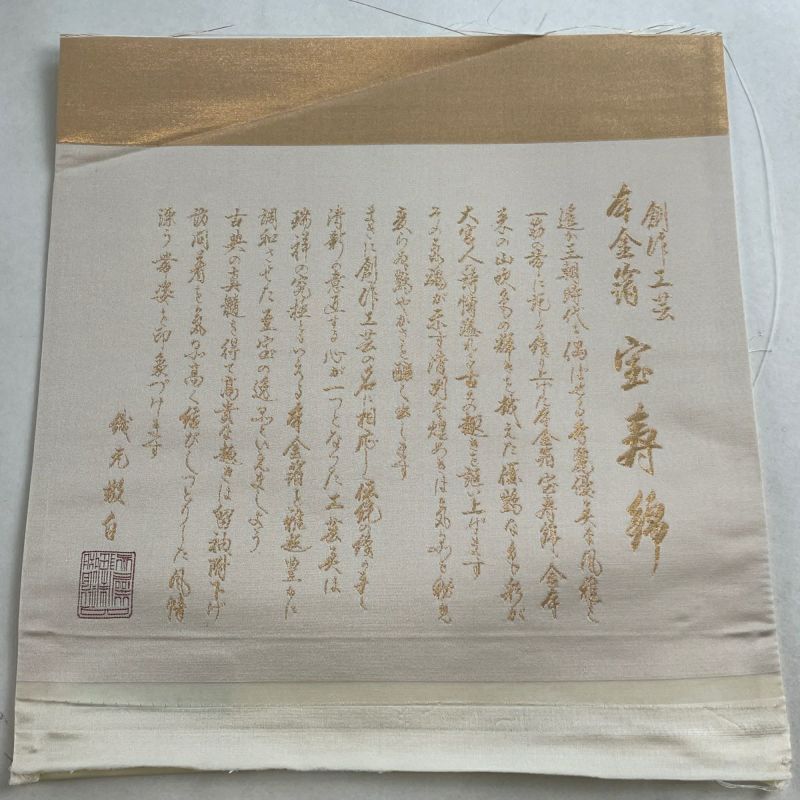 創作工芸
本金箔 宝寿錦
遠く王朝時代を偲ばせる秀麗優美な風雅を
一筋の帯に託して織り上げた本金箔宝寿錦 金糸
美の山吹色の輝きを救えた優艶な
大宮人の詩情溢れる古の趣きを謳い上げます
その気魂が示す清冽な煌めきは
変らぬ艶やかさを醸し出します
まさに創作工芸の名に相応しい伝統織の美し
清新の意匠する心が一つとなった工芸美は
瑞祥の究極といえる本金箔を雅趣豊かに
調和させた至宝の逸品といえましょう
古典の真髄を得て高貴な趣きは留袖附下げ
訪問着を気品高く結びしっとりした風情
漂う帯姿を印象づけます
織元敬白